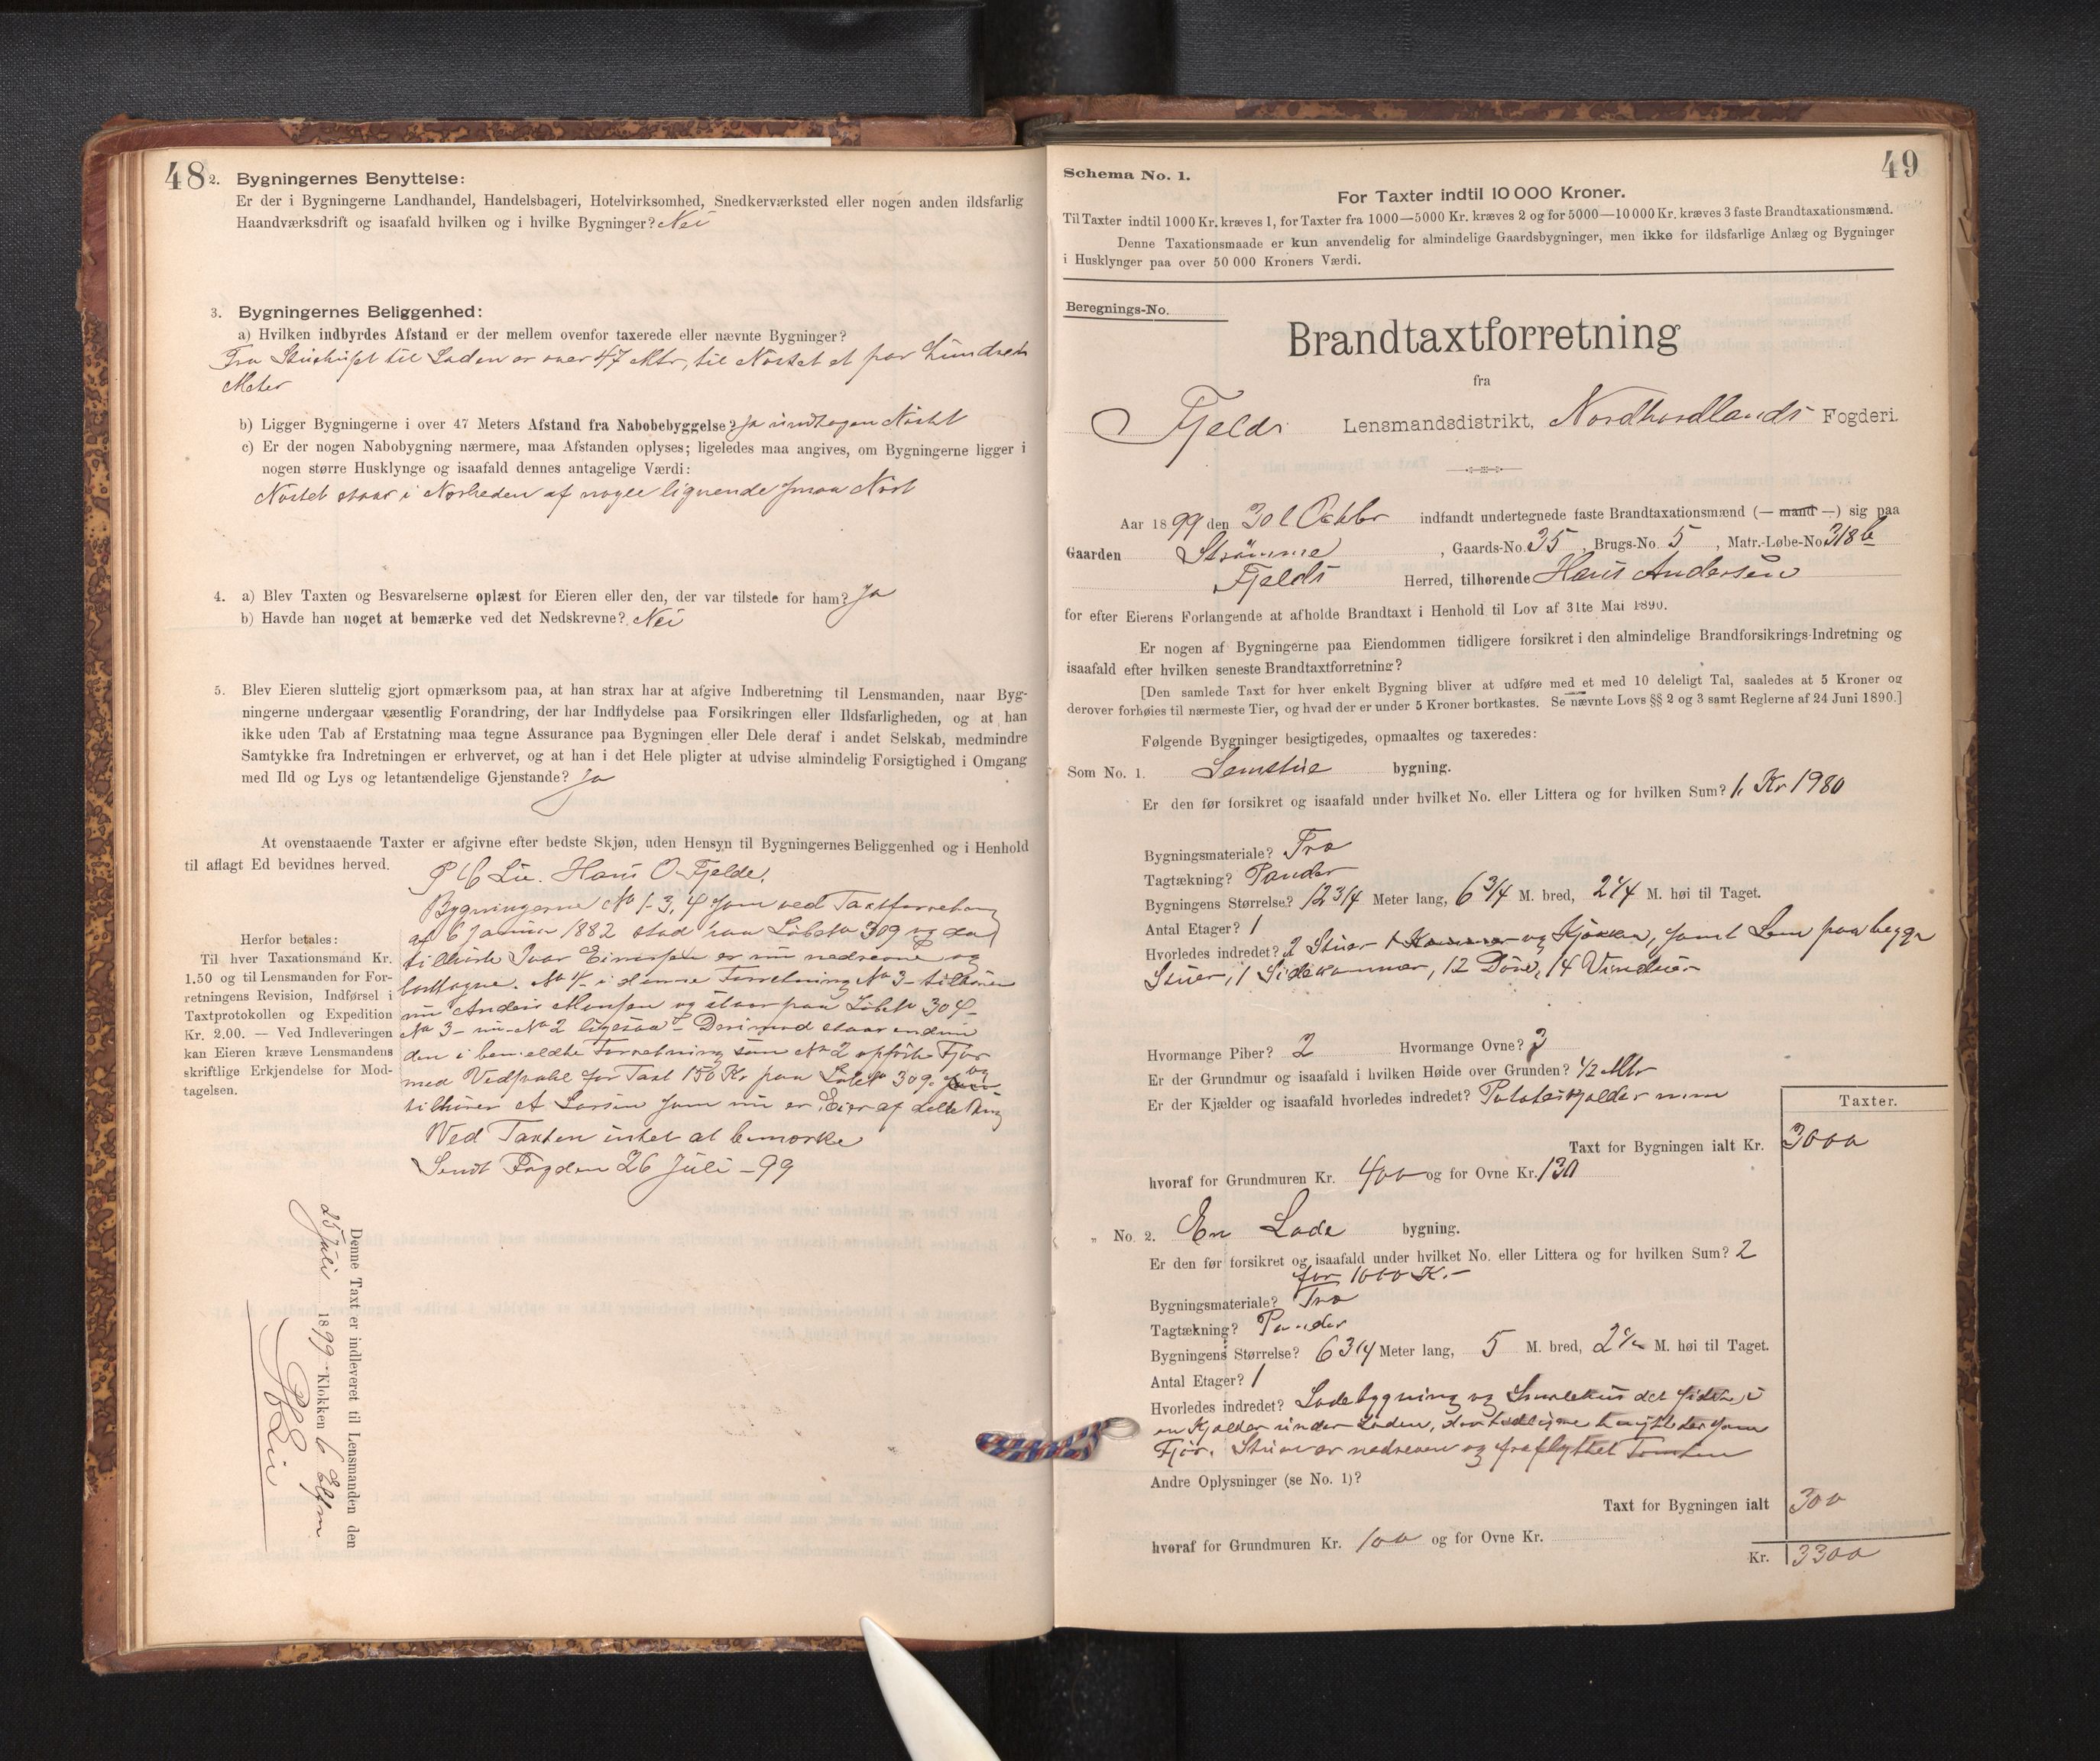 48
2. Bygningernes Benyttelse:
Er der i Bygningerne Landhandel, Handelsbageri, Hotelvirksomhed, Snedkerværksted eller nogen anden ildsfarlig
Haandværksdrift og isaafald hvilken og i hvilke Bygninger? Nei
3. Bygningernes Beliggenhed:
a) Hvilken indbyrdes Afstand er der mellem ovenfor taxerede eller nævnte Bygninger?
Fra Stuehuset til Laden er over 47 Mtr, til Nøstet et par Hundrede
Meter
b) Ligger Bygningerne i over 47 Meters Afstand fra Nabobebyggelse? Ja undtagen Nøstet
c) Er der nogen Nabobygning nærmere, maa Afstanden oplyses; ligeledes maa angives, om Bygningerne ligger i
nogen større Husklynge og isaafald dennes antagelige Værdi:
Nøstet staar i Nærheden af nogle lignende smaa Nøst
4. a) Blev Taxten og Besvarelserne oplæst for Eieren eller den, der var tilstede for ham? Ja
b) Havde han noget at bemærke ved det Nedskrevne? Nei
5. Blev Eieren sluttelig gjort opmærksom paa, at han strax har at afgive Indberetning til Lensmanden, naar Byg-
ningerne undergaar væsentlig Forandring, der har Indflydelse paa Forsikringen eller Ildsfarligheden, og at han
ikke uden Tab af Erstatning maa tegne Assurance paa Bygningen eller Dele deraf i andet Selskab, medmindre
Samtykke fra Indretningen er erhvervet, og at han i det Hele pligter at udvise almindelig Forsigtighed i Omgang
med Ild og Lys og letantændelige Gjenstande? Ja
At ovenstaaende Taxter er afgivne efter bedste Skjøn, uden Hensyn til Bygningernes Beliggenhed og i Henhold
til aflagt Ed bevidnes herved.
Lie. Hans O Fjelde.
Bygningerne No 1-3, 4 som ved Taxtforretning
af 6 Januar 1882 stod paa Løbeno 309 og da
tilhørte Ivar Einarsen er nu nedrevne og
borttagne. No 4 i denne Forretning No 3 tilhører
nu Anders Monsen og staar paa Løbeno 304
No 3 nu No 2 ligesaa Derimod staar endnu
den i bemeldte Forretning som No 2 opførte Fjør
med Vedskale for Taxt 150 Kr paa Løbeno 309. og
tilhører A Larsen som nu er Eier af dette Brug
Ved Taxten intet at bemærke
Sendt Fogden 26 Juli -99
Herfor betales:
Til hver Taxationsmand Kr.
1.50 og til Lensmanden for For-
retningens Revision, Indførsel i
Taxtprotokollen og Expedition
Kr. 2.00. — Ved Indleveringen
kan Eieren kræve Lensmandens
skriftlige Erkjendelse for Mod-
tagelsen.
Denne Taxt er indleveret til Lensmanden den
25 Juli 1899 Klokken 6 Efm
Lie
49
Schema No. 1.
For Taxter indtil 10 000 Kroner.
Til Taxter indtil 1000 Kr. kræves 1, for Taxter fra 1000—5000 Kr. kræves 2 og for 5000—10 000 Kr. kræves 3 faste Brandtaxationsmænd.
Denne Taxationsmaade er kun anvendelig for almindelige Gaardsbygninger, men ikke for ildsfarlige Anlæg og Bygninger
i Husklynger paa over 50 000 Kroners Værdi.
Beregnings-No.
Brandtaxtforretning
fra
Fjelds Lensmandsdistrikt, Nordhordlands Fogderi.
Aar 1899 den 30t Oktbr indfandt undertegnede faste Brandtaxationsmænd (— mand —) sig paa
Gaarden Strømme, Gaards-No. 35, Brugs-No. 5, Matr.-Løbe-No 318 b
Fjelds Herred, tilhørende Hans Andersen
for efter Eierens Forlangende at afholde Brandtaxt i Henhold til Lov af 31te Mai 1890.
Er nogen af Bygningerne paa Eiendommen tidligere forsikret i den almindelige Brandforsikrings-Indretning og
isaafald efter hvilken seneste Brandtaxtforretning?
[Den samlede Taxt for hver enkelt Bygning bliver at udføre med et med 10 deleligt Tal, saaledes at 5 Kroner og
derover forhøies til nærmeste Tier, og hvad der er under 5 Kroner bortkastes. Se nævnte Lovs §§ 2 og 3 samt Reglerne af 24 Juni 1890.]
Følgende Bygninger besigtigedes, opmaaltes og taxeredes:
Som No. 1. Lemstue bygning.
Er den før forsikret og isaafald under hvilket No. eller Littera og for hvilken Sum? 1. Kr 1980
Bygningsmateriale? Træ
Tagtækning? Pander
Bygningens Størrelse? 12 3/4 Meter lang, 6 3/4 M. bred, 2 1/4 M. høi til Taget.
Antal Etager? 1
Hvorledes indredet? 2 Stuer 1 Kammer og Kjøkken, samt Lem paa begge
Stuer, 1 Sidekammer, 12 Døre, 14 Vinduer
Hvormange Piber? 2 Hvormange Ovne? 3
Er der Grundmur og isaafald i hvilken Høide over Grunden? 1/2 Mtr
Er der Kjælder og isaafald hvorledes indredet? Potateskjælder
Taxter.
Taxt for Bygningen ialt Kr. 3000
hvoraf for Grundmuren Kr. 400 og for Ovne Kr. 130
„ No. 2. En Lade bygning.
Er den før forsikret og isaafald under hvilket No. eller Littera og for hvilken Sum? 2
for 1000 K.-
Bygningsmateriale? Træ
Tagtækning? Pander
Bygningens Størrelse? 6 3/4 Meter lang, 5 M. bred, M. høi til Taget.
Antal Etager? 1
Hvorledes indredet? Ladebygning og det sidste i
en Kjælder under Laden, som
Fjør. er nedreven og fraflyttet Tomten
Andre Oplysninger (se No. 1)?
Taxt for Bygningen ialt 300
hvoraf for Grundmuren Kr. 100 og for Ovne Kr.
Kr. 3300